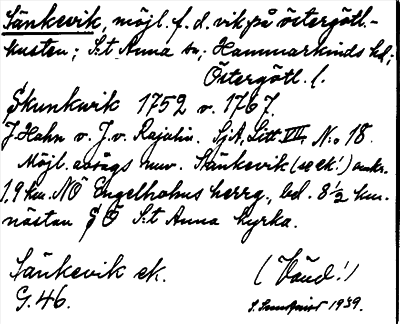 Sänkevik, möjl. f. d. vik på östergötl.-
kusten; S:t Anna sn; Hammarkinds hd;
Östergötl. l.
Skunkwik 1752 o. 1767
J. Hahn o. J. v. Rajalin. SjA, Litt VII, No 18.
Möjl. avsågs nuv. Sänkevik (se ek!) omkr.
1,9 km. NÖ Engelholms herrg., bel. 8 1/2 km.
nästan S Ö S:t Anna kyrka.
Sänkevik ek.
(Vänd!)
G. 46.
1939.